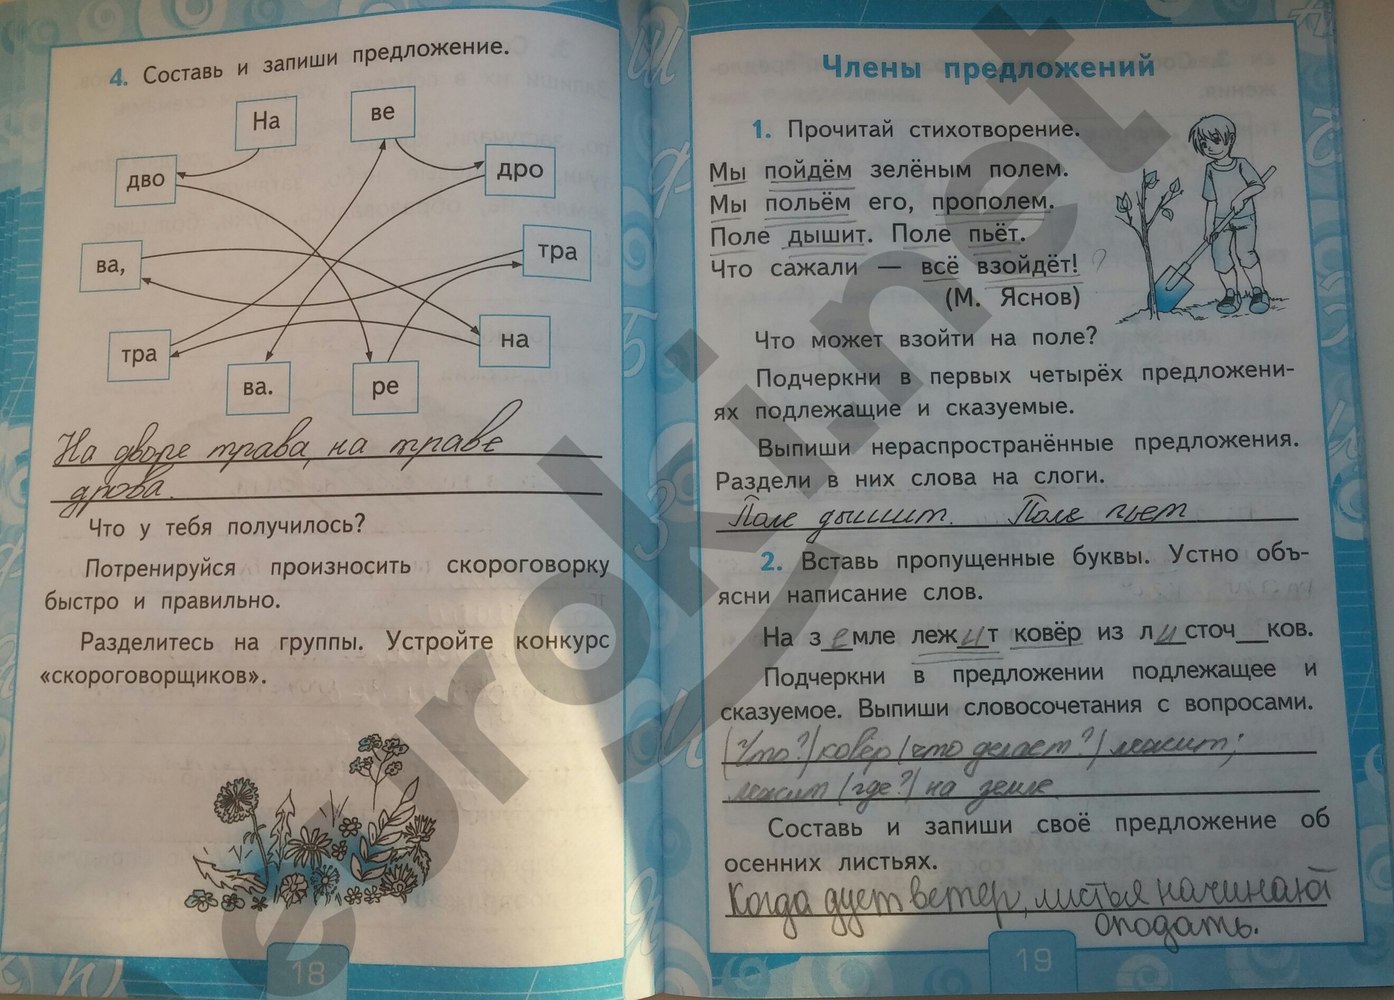 4. Составь и запиши предложение.
На
ве
дво
дро
ва,
тра
тра
на
ва.
ре
На дворе трава, на траве
дрова.
Что у тебя получилось?
Потренируйся произносить скороговорку
быстро и правильно.
Разделитесь на группы. Устройте конкурс
«скороговорщиков».
18
Члены предложений
1. Прочитай стихотворение.
Мы пойдём зелёным полем.
Мы польём его, прополем.
Поле дышит. Поле пьёт.
Что сажали — всё взойдёт! ?
(М. Яснов)
Что может взойти на поле?
Подчеркни в первых четырёх предложени-
ях подлежащие и сказуемые.
Выпиши нераспространённые предложения.
Раздели в них слова на слоги.
Поле дышит. Поле пьет
2. Вставь пропущенные буквы. Устно объ-
ясни написание слов.
На земле лежит ковёр из листоч__ков.
Подчеркни в предложении подлежащее и
сказуемое. Выпиши словосочетания с вопросами.
(Что?) ковёр (что делает?) лежит;
лежит (где?) на земле.
Составь и запиши своё предложение об
осенних листьях.
Когда дует ветер, листья начинают
оподать.
19
euroki.net